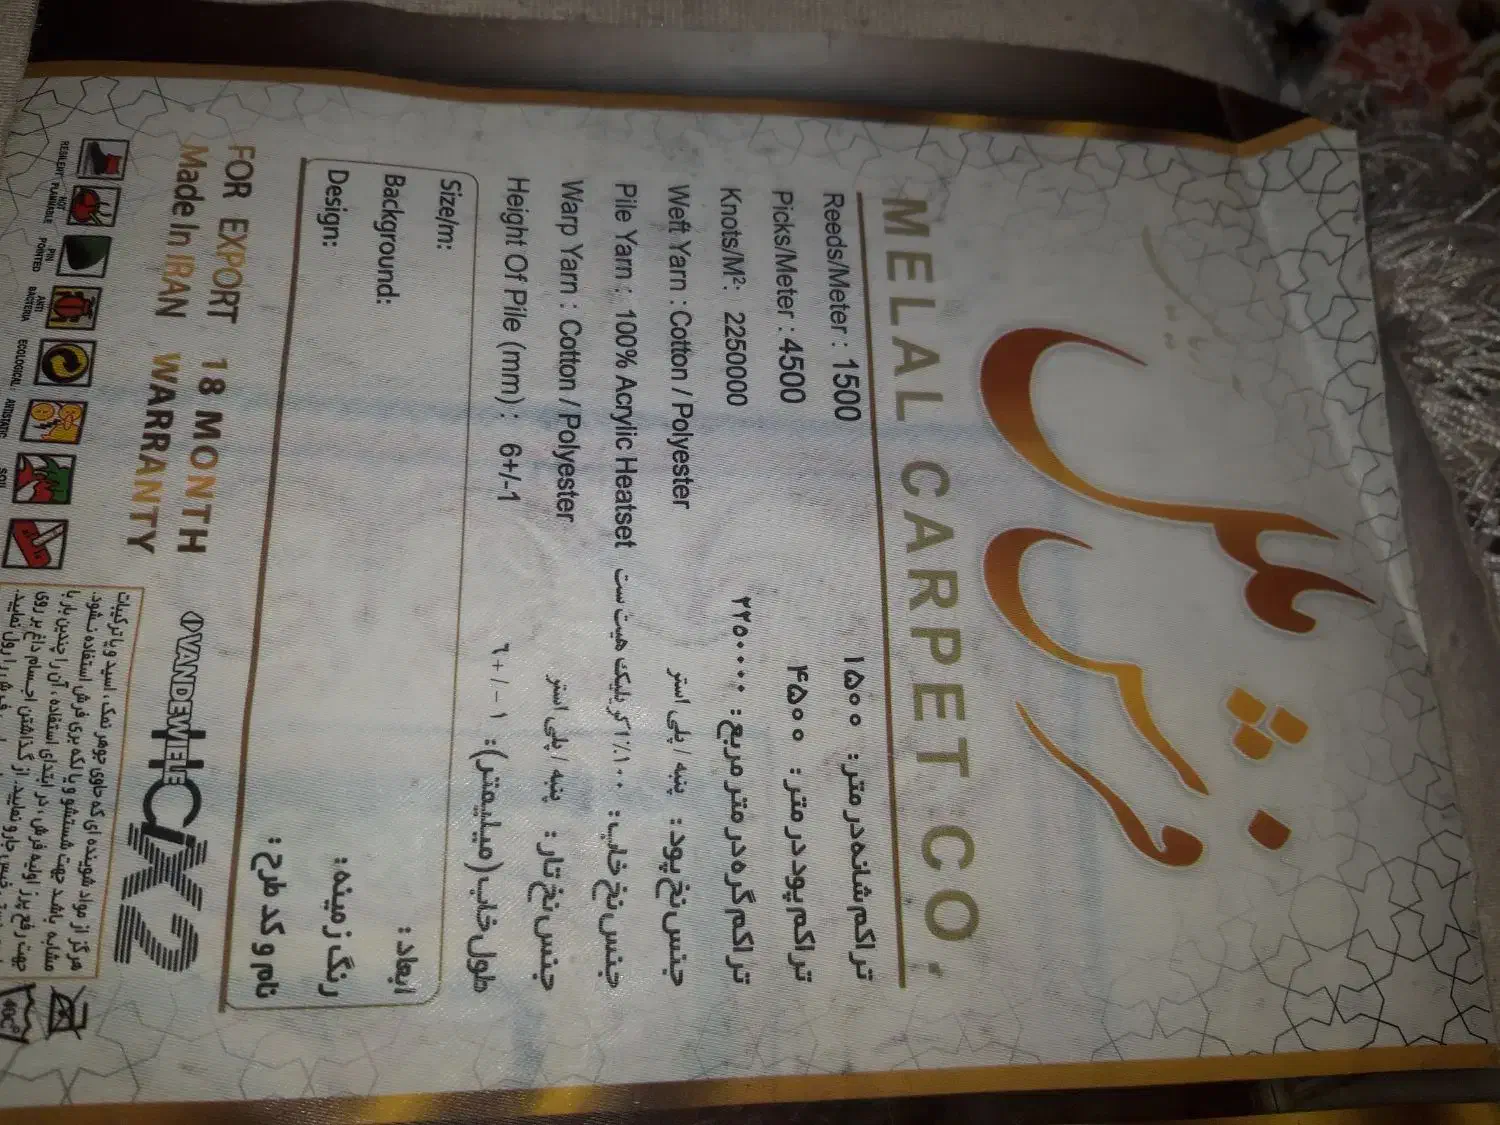 فرش ملل
MELAL CARPET CO.
Reeds/Meter : 1500
تراکم شانه در متر: ۱۵۰۰
Picks/Meter : 4500
تراکم پود در متر: ۴۵۰۰
Knots/M²: 2250000
تراکم گره در متر مربع: ۲۲۵۰۰۰۰
Weft Yarn : Cotton / Polyester
جنس نخ پود: پنبه / پلی استر
Pile Yarn : 100% Acrylic Heatset
جنس نخ خاب: ۱۰۰٪ اکریلیک هیت ست
Warp Yarn : Cotton / Polyester
جنس نخ تار: پنبه / پلی استر
Height Of Pile (mm) : 6+/-1
طول خاب (میلیمتر): ۱ -/+ ۶
Size/m:
ابعاد:
Background:
رنگ زمینه:
Design:
نام و کد طرح:
FOR EXPORT 18 MONTH
Made In IRAN WARRANTY
VANDEWIELE
CIX2
RESILIENT
NOT FLAMMABLE
PIN POINTED
ANTI BACTERIA
ECOLOGICAL
ANTISTATIC
SOIL
هرگز از مواد شوینده ای که حاوی جوهر نمک، اسید و یا ترکیبات
مشابه باشد جهت شستشو و یا لکه بری فرش استفاده نشود.
جهت رفع پرز اولیه فرش، در ابتدای استفاده، آن را چندین بار با
جارو نمایید. از گذاشتن اجسام داغ بر روی
فرش را رول نمایید.
40C°